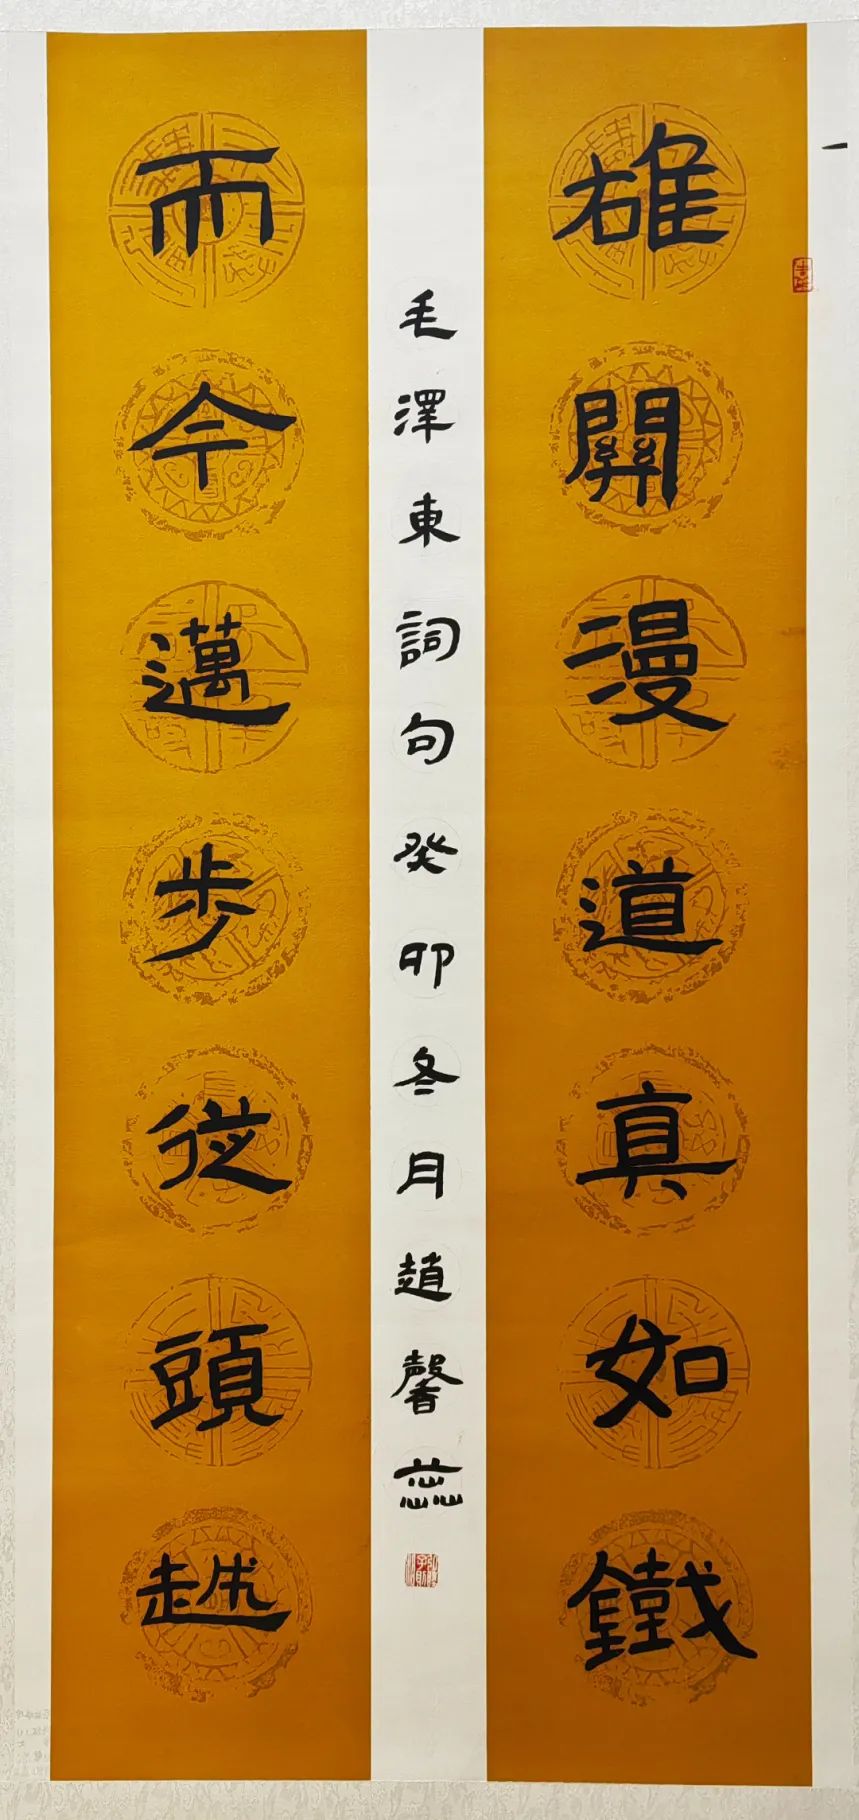 雄關漫道真如鐵
而今邁步從頭越
毛澤東詞句癸卯冬月趙馨蕊